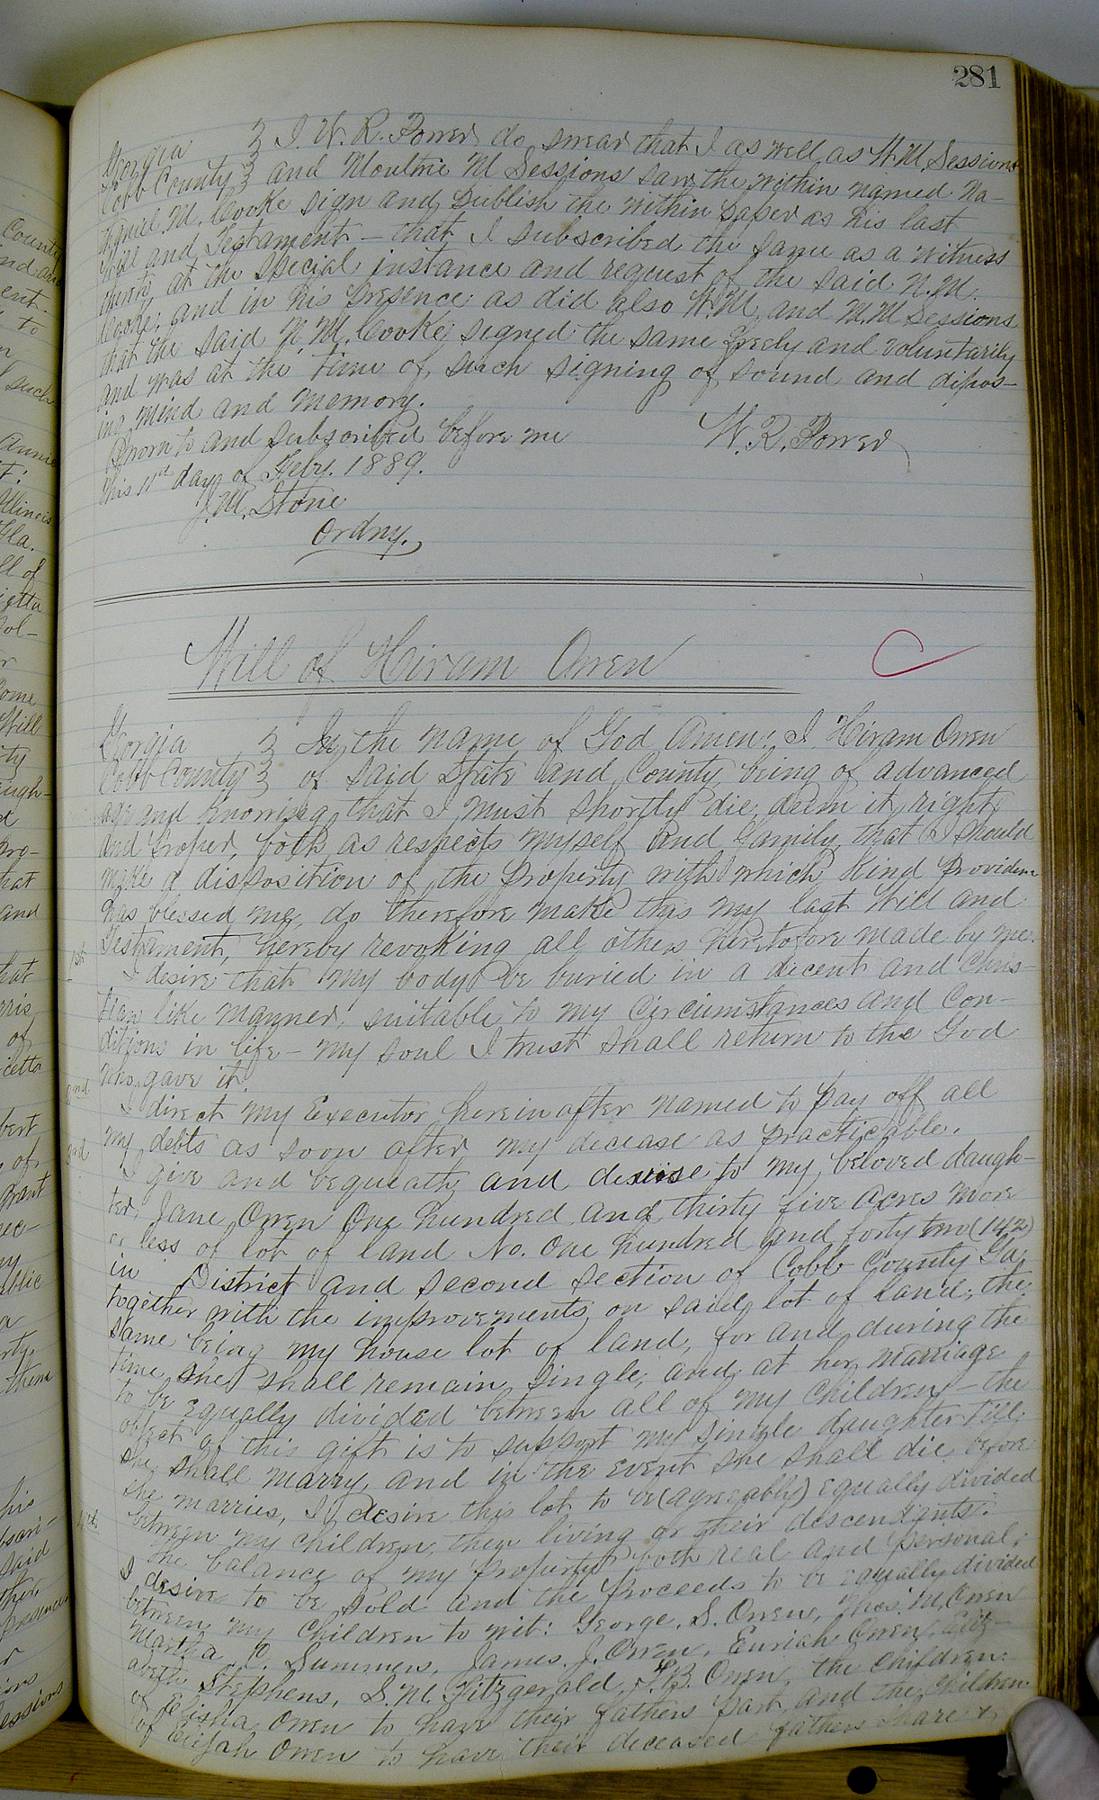 281
Georgia } I W. R. Power do swear that I as well as W. M. Sessions
Cobb County } and Moultrie M Sessions saw the within named Na-
thaniel M. Cooke sign and publish the within paper as his last
Will and Testament – that I subscribed the same as a witness
thereto at the special instance and request of the said N. M.
Cooke; and in his presence as did also W. M. and M. M Sessions
that the said N. M. Cooke signed the same freely and voluntarily
and was at the time of such signing of sound and dispos-
ing mind and memory.
Sworn to and subscribed before me W. R. Power
this 11th day of Feby. 1889.
J. M. Stone
Ordny.
Will of Hiram Owen
Georgia } In the name of God Amen: I Hiram Owen
Cobb County } of said State and County being of advanced
age and knowing that I must shortly die, deem it right
and proper, both as respects myself and family that I should
make a disposition of the property with which kind Providence
has blessed me, do therefore make this my last Will and
Testament, hereby revoking all others heretofore made by me.
1st
I desire that my body be buried in a decent and Chris-
tian like manner, suitable to my circumstances and con-
ditions in life – my soul I trust shall return to the God
who gave it.
2nd
I direct my Executor herein after named to pay off all
my debts as soon after my decease as practicable.
3rd
I give and bequeath and devise to my beloved daugh-
ter, Jane Owen One hundred and thirty five acres more
or less of lot of land No. One hundred and forty two (142)
in District and second section of Cobb County Ga.
together with the improvements on said lot of land; the
same being my house lot of land, for and during the
time she shall remain single, and at her marriage
to be equally divided between all of my children – the
object of this gift is to support my single daughter till
she shall marry, and in the event she shall die before
she marries, I desire this lot to be (agreeably) equally divided
between my children then living or their descendants.
4th
The balance of my property both real and personal,
I desire to be sold and the proceeds to be equally divided
between my children to wit: George, S. Owen, Thos. M. Owen
Martha, O. Summers, James, J. Owen, Euriah Owen, Eliz-
abeth Stephens, S. M. Fitzgerald, F. B. Owen, the children
of Elisha Owen to have their fathers part, and the children
of Elijah Owen to have their deceased fathers share &